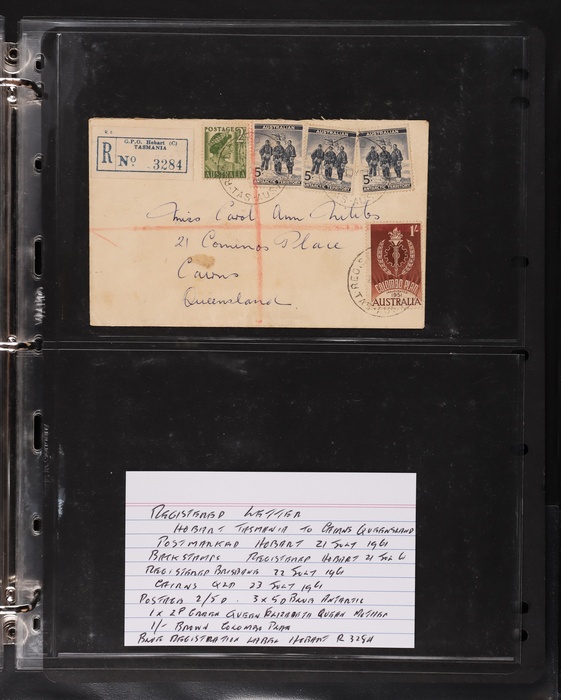 G.P.O. Hobart (C)
TASMANIA
R No 3284
POSTAGE 2D
AUSTRALIA
AUSTRALIAN
5D
ANTARCTIC TERRITORY
AUSTRALIAN
5D
ANTARCTIC TERRITORY
AUSTRALIAN
5D
ANTARCTIC TERRITORY
Miss Carol Ann
21 Place
Cairns
Queensland
1/-
COLOMBO PLAN
1951
AUSTRALIA
REGISTERED LETTER
HOBART TASMANIA TO CAIRNS QUEENSLAND
POSTMARKED HOBART 21 JULY 1961
BACKSTAMPS REGISTERED HOBART 21 JUL 61
REGISTERED BRISBANE 22 JULY 1961
CAIRNS QLD 23 JULY 1961
POSTAGE 2/5D. 3 x 5D BLUE ANTARTIC
1 x 2D GREEN QUEEN ELIZABETH QUEEN MOTHER
1/- BROWN COLOMBO PLAN
BLUE REGISTRATION LABEL HOBART R 3284